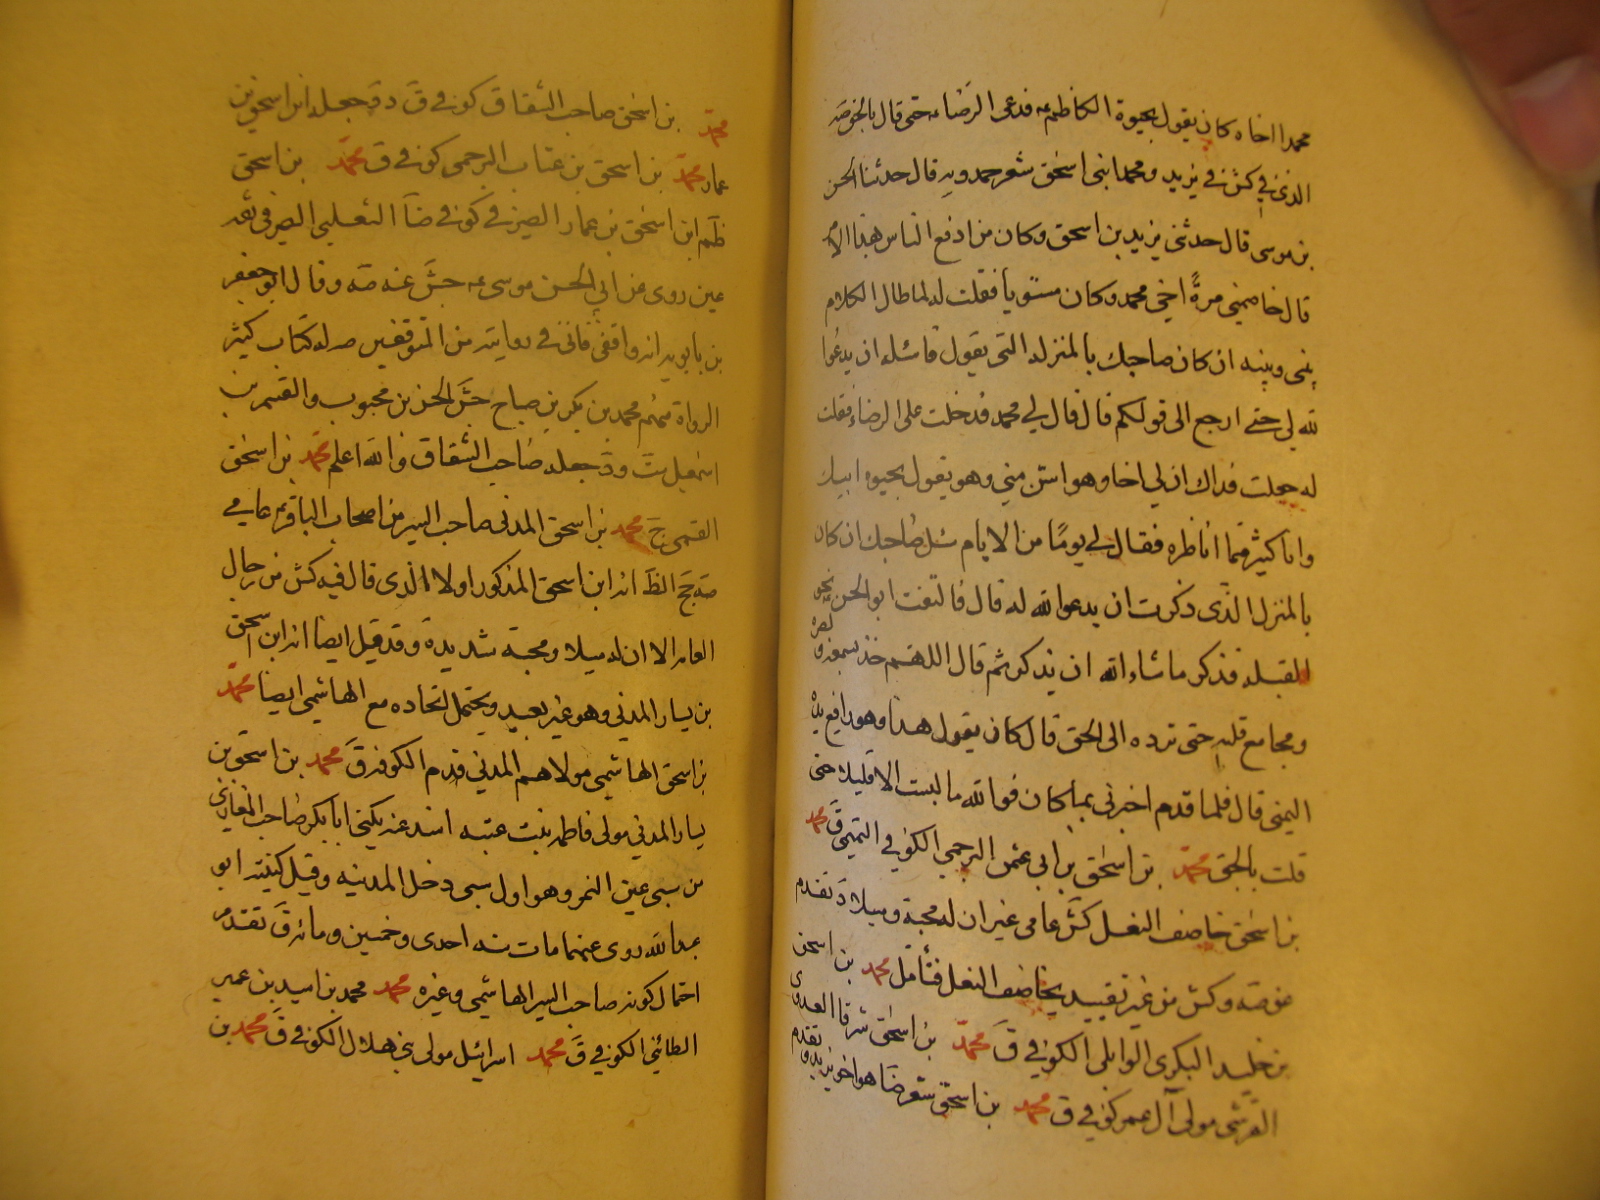 محمدا اخاه كان يقول بحيوة الكاظم ع فدعى الرضاء ع حتى قال بالحق صه
الذى فى كش فى يزيد و محمد ابنى اسحق شعر حمدويه قال حدثنا الحسن
بن موسى قال حدثنى يزيد بن اسحق وكان من ادفع الناس لهذا الامر
قال خاصمنى مرة اخى محمد وكان مستويا فقلت له لما طال الكلام
بينى وبينه ان كان صاحبك بالمنزلة التى يقول فاسئله ان يدعوا
الله لى حتى ارجع الى قولكم قال قال لى محمد فدخلت على الرضاء فقلت
له جعلت فداك ان لى اخا وهو اسن منى وهو يقول بحيوه ابيك
وانا كثيرا ما اناظره فقال لى يوما من الايام سئل صاحبك ان كان
بالمنزل الذى ذكرت ان يدعوا الله له قال فالتفت ابو الحسن نحو
القبله فذكر ما شاء الله ان يذكر ثم قال اللهم خذ بسمعه و بصره
ومجامع قلبه حتى ترده الى الحق قال كان يقول هذا وهو رافع يده
اليمنى قال فلما قدم اخبرنى بما كان فوالله ما لبست الا قليلا حتى
قلت بالحق محمد بن اسحق بن ابى عثمن الرجمى الكوفى التميمى ق محمد
بن اسحق خاصف النعل كش عامى غير ان له محبة وميلا د تقدم
عن صه وكش من غير تقييد بخاصف النعل فتأمل محمد بن اسحق
بن خليد البكرى الوابلى الكوفى ق محمد بن اسحق شرقا العدوى
القرشى مولى آل عمر كوفى ق محمد بن اسحق شعر ضا هو اخو يزيد و تقدم
محمد بن اسحق صاحب الشقاق كوفى ق د و جعله ابن اسحق بن
عمار محمد بن اسحق بن عتاب الرجمى كوفى ق محمد بن اسحق
ظم ابن اسحق بن عمار الصيرفى كوفى ضا التغلبى الصيرفى ثقة
عين روى عن ابى الحسن موسى ع جش عنه صه وقال ابو جعفر
بن بابويه انه واقفى فانى فى روايته من المتوقفين صه له كتاب كثير
الرواة منهم محمد بن بكر بن صباح جش الحسن بن محبوب والقسم بن
اسمعيل ست و جعله صاحب الشقاق والله اعلم محمد بن اسحق
القمى ج محمد بن اسحق المدنى صاحب السير من اصحاب الباقر ع عامى
صه الظ انه ابن اسحق المذكور اولا الذى قال فيه كش من رجال
العامه الا ان له ميلا ومحبة شديدة وقد قيل ايضا انه ابن اسحق
بن يسار المدنى وهو غير بعيد ويحتمل اتحاده مع الهاشمى ايضا محمد
بن اسحق الهاشمى مولاهم المدنى قدم الكوفه ق محمد بن اسحق بن
يسار المدنى مولى فاطمه بنت عتبه اسند عنه يكنى ابا بكر صاحب المغازى
من سبى عين التمر وهو اول سبى دخل المدينه وقيل كنيته ابو
عبد الله روى عنهما مات سنه احدى وخمسين ومائه ق تقدم
احتمال كونه صاحب السير الهاشمى وغيره محمد محمد بن اسيد بن عمير
الطائى الكوفى ق محمد اسرائيل مولى بنى هلال الكوفى ق محمد بن